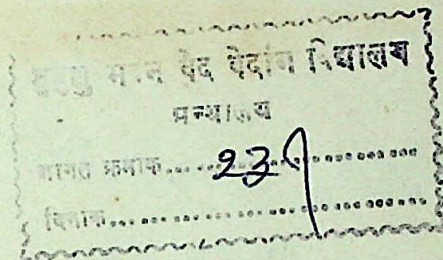 मुमुक्षु भवन वेद वेदांग विद्यालय
ग्रन्थालय
आगत क्रमांक........
दिनांक........